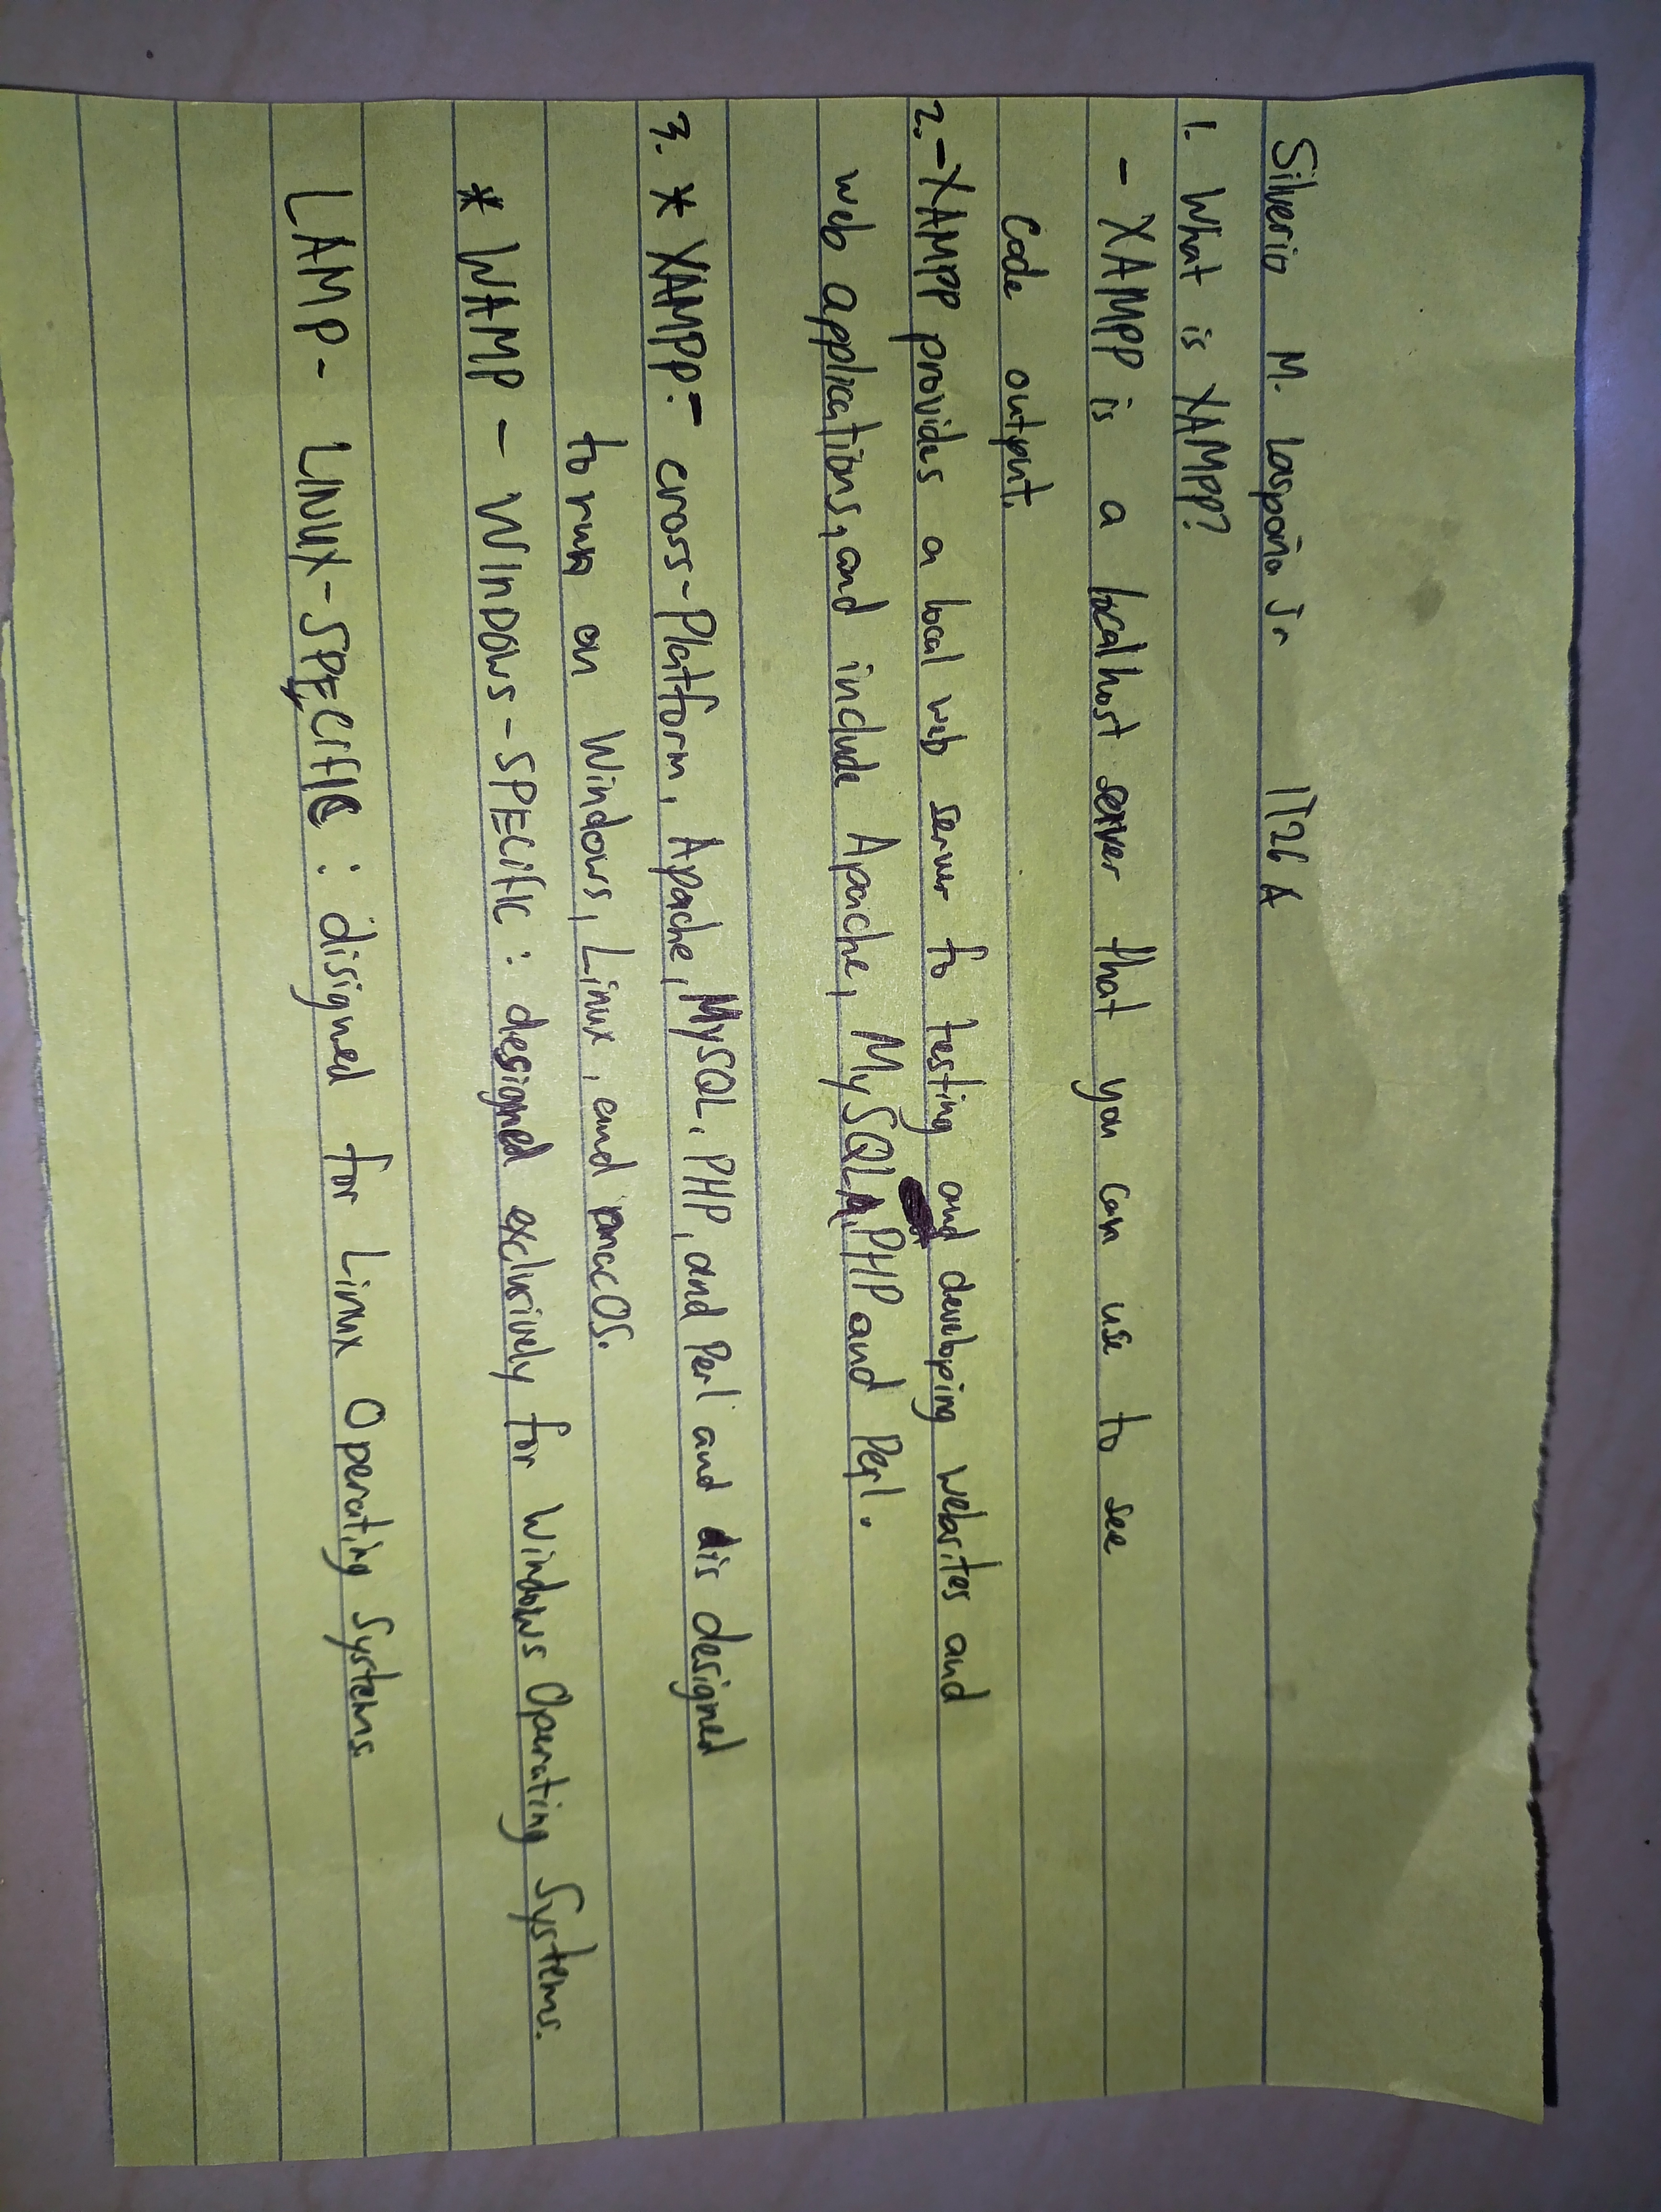 Silverio M. Laspoña Jr IT26 A
1. What is XAMPP?
- XAMPP is a localhost server that you can use to see
Code output.
2. - XAMPP provides a local web server to testing and developing websites and
web applications, and include Apache, MySQL, PHP and Perl.
3. * XAMPP:- cross-Platform, Apache, MySQL, PHP, and Perl and is designed
to run on Windows, Linux, and macOS.
* WAMP - WINDOWS-SPECIFIC : designed exclusively for Windows Operating Systems.
LAMP - LINUX-SPECIFIC : disigned for Linux Operating Systems.